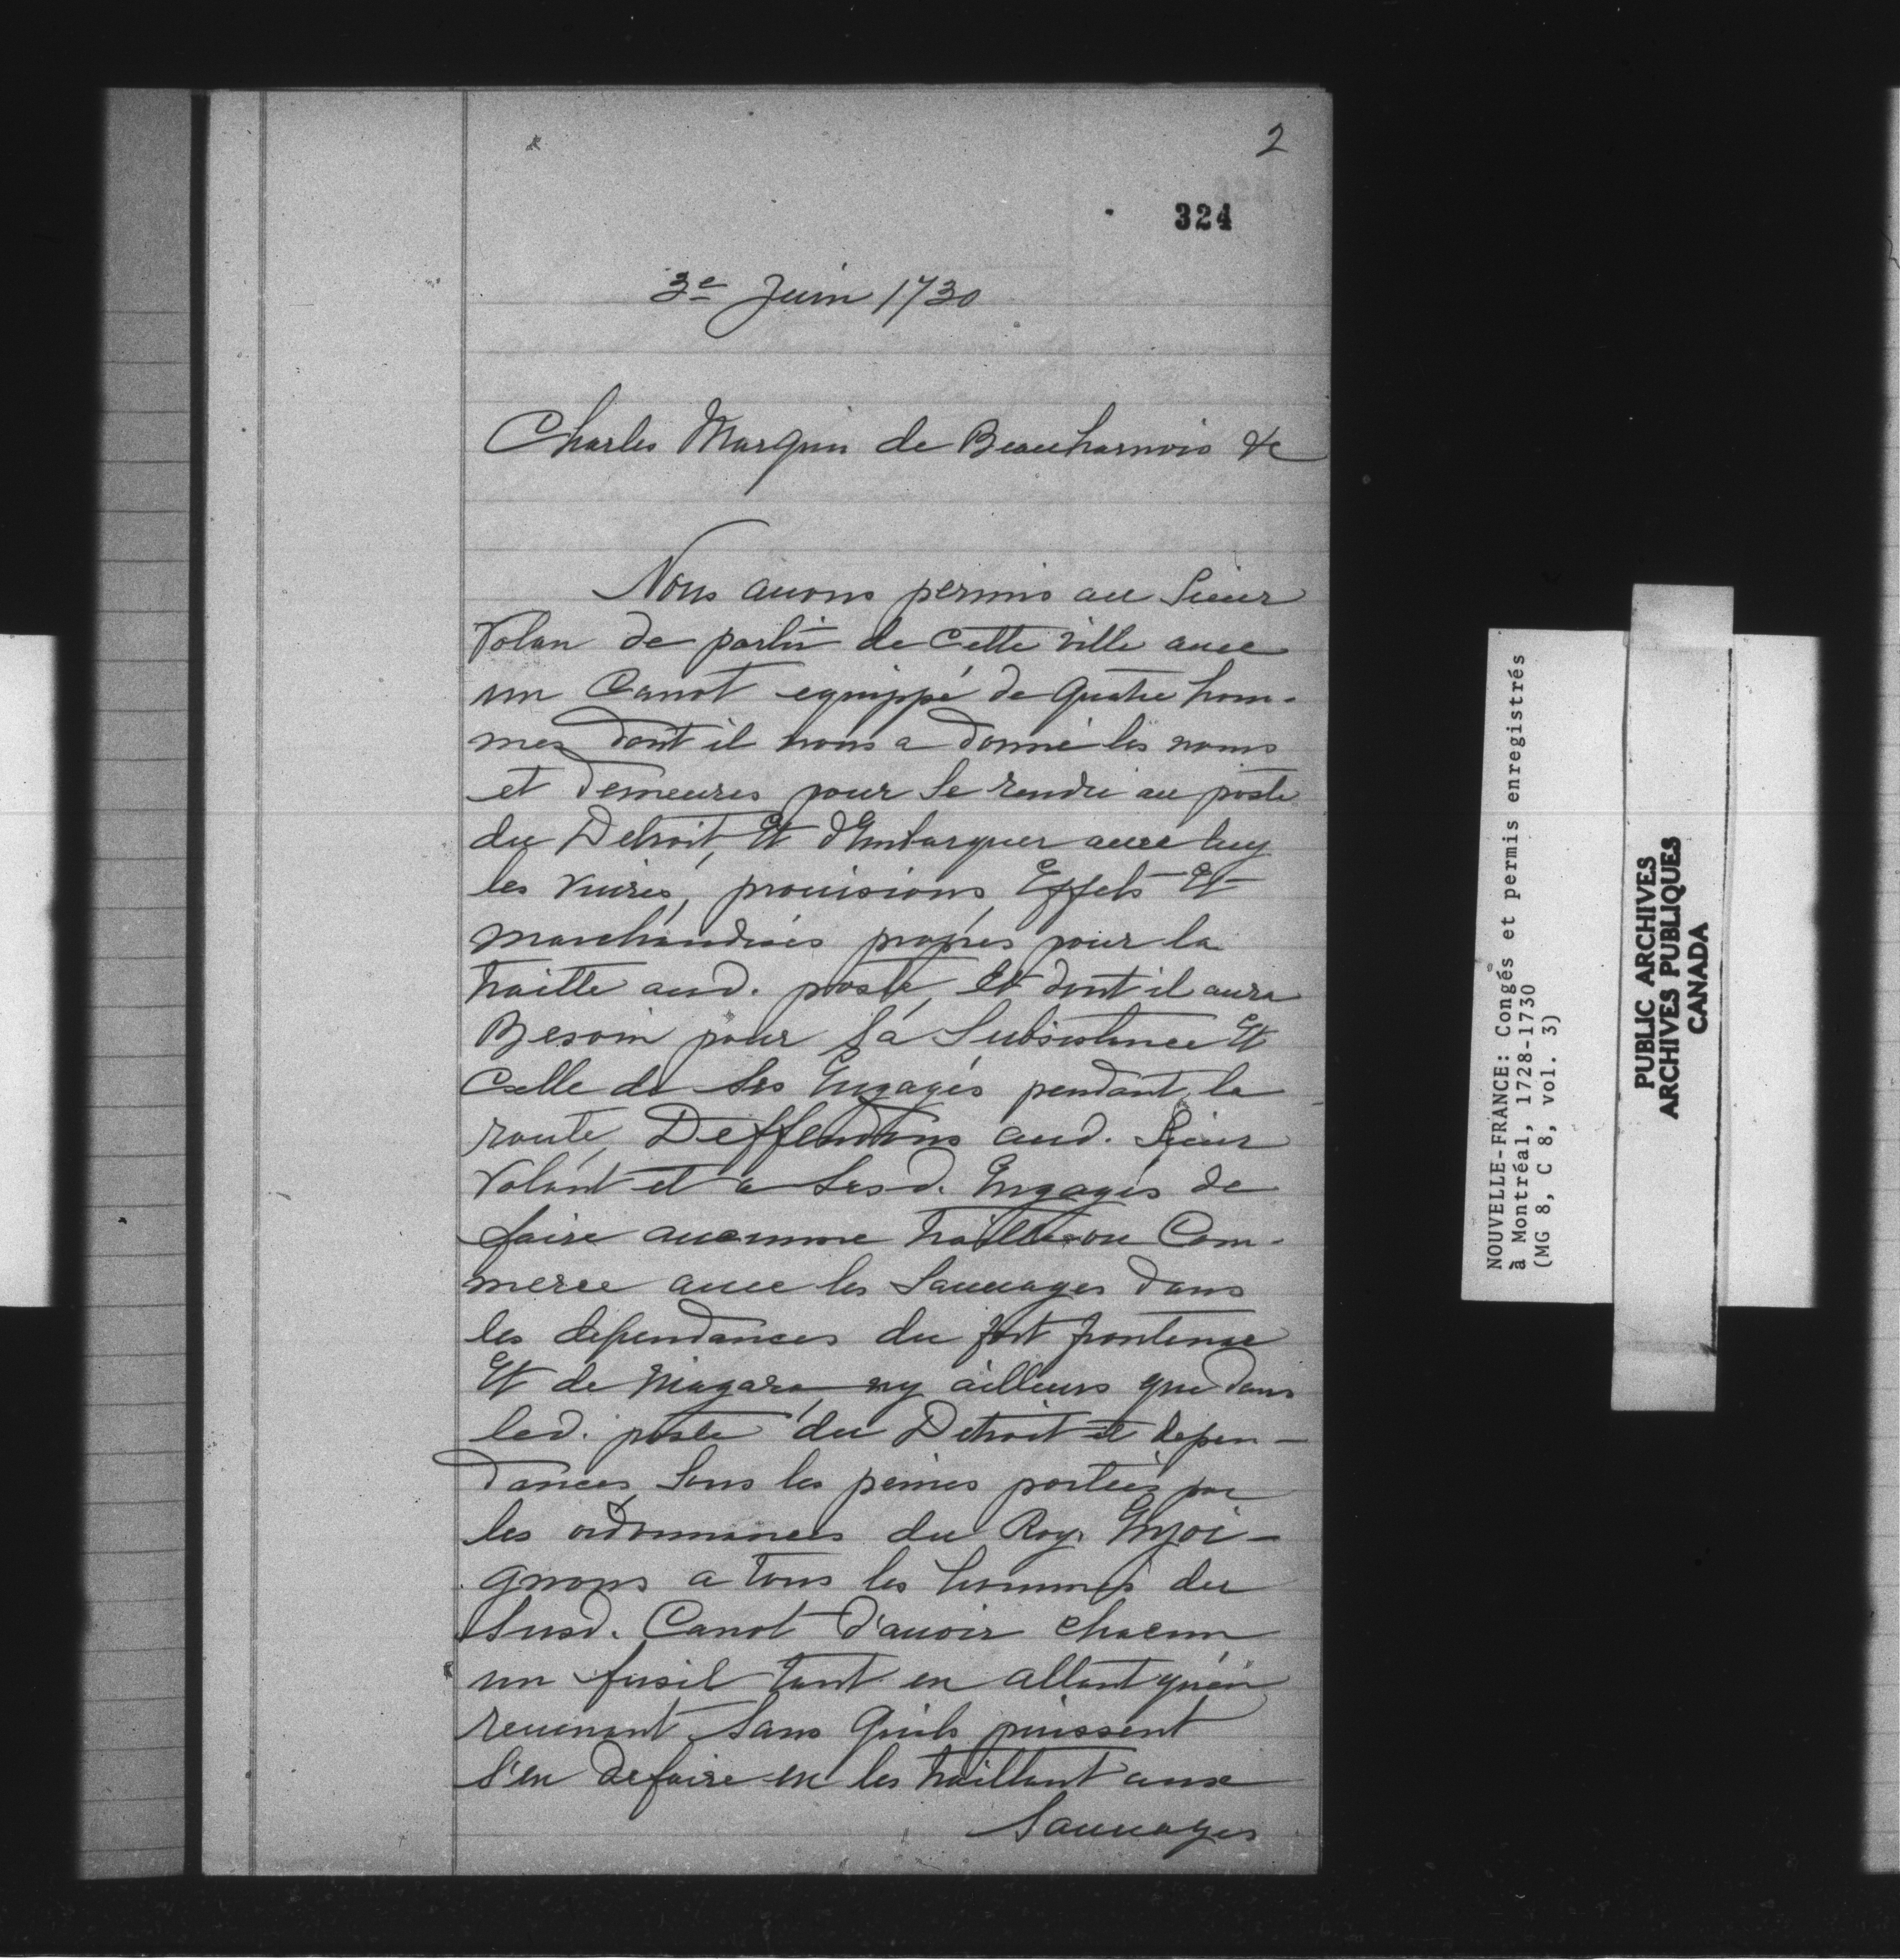 2
324
3e Juin 1730
Charles Marquis de Beauharnois &c
Nous auons permis au Sieur
Volan de partir de Cette ville auec
un Canot equippé de quatre hom-
mes dont il nous a donné les noms
et demeures pour Se rendre au poste
du Detroit, Et d'Embarquer auec luy
les viures, prouisions, Effets Et
marchandises propres pour la
traitte aud. poste, Et dont il aura
Besoin pour Sa Subsistance Et
Celle de Ses Engagés pendant la
route, Deffendons aud. Sieur
Volant et a Sesd. Engagés de
faire aucunne traitte ou Com-
merce auec les Sauuages dans
les dependances du fort frontenac
Et de Niagara, ny ailleurs que dans
led. poste du Detroit et depen-
dances, Sous les peines portées par
les ordonnances du Roy. Enjoi-
gnons a tous les hommes du
Susd. Canot d'auoir chacun
un fusil tant en allant qu'en
reuenant Sans quils puissent
S'en defaire en les traittant aux
Sauuages
NOUVELLE-FRANCE: Congés et permis enregistrés
à Montréal, 1728-1730
(MG 8, C 8, vol. 3)
PUBLIC ARCHIVES
ARCHIVES PUBLIQUES
CANADA